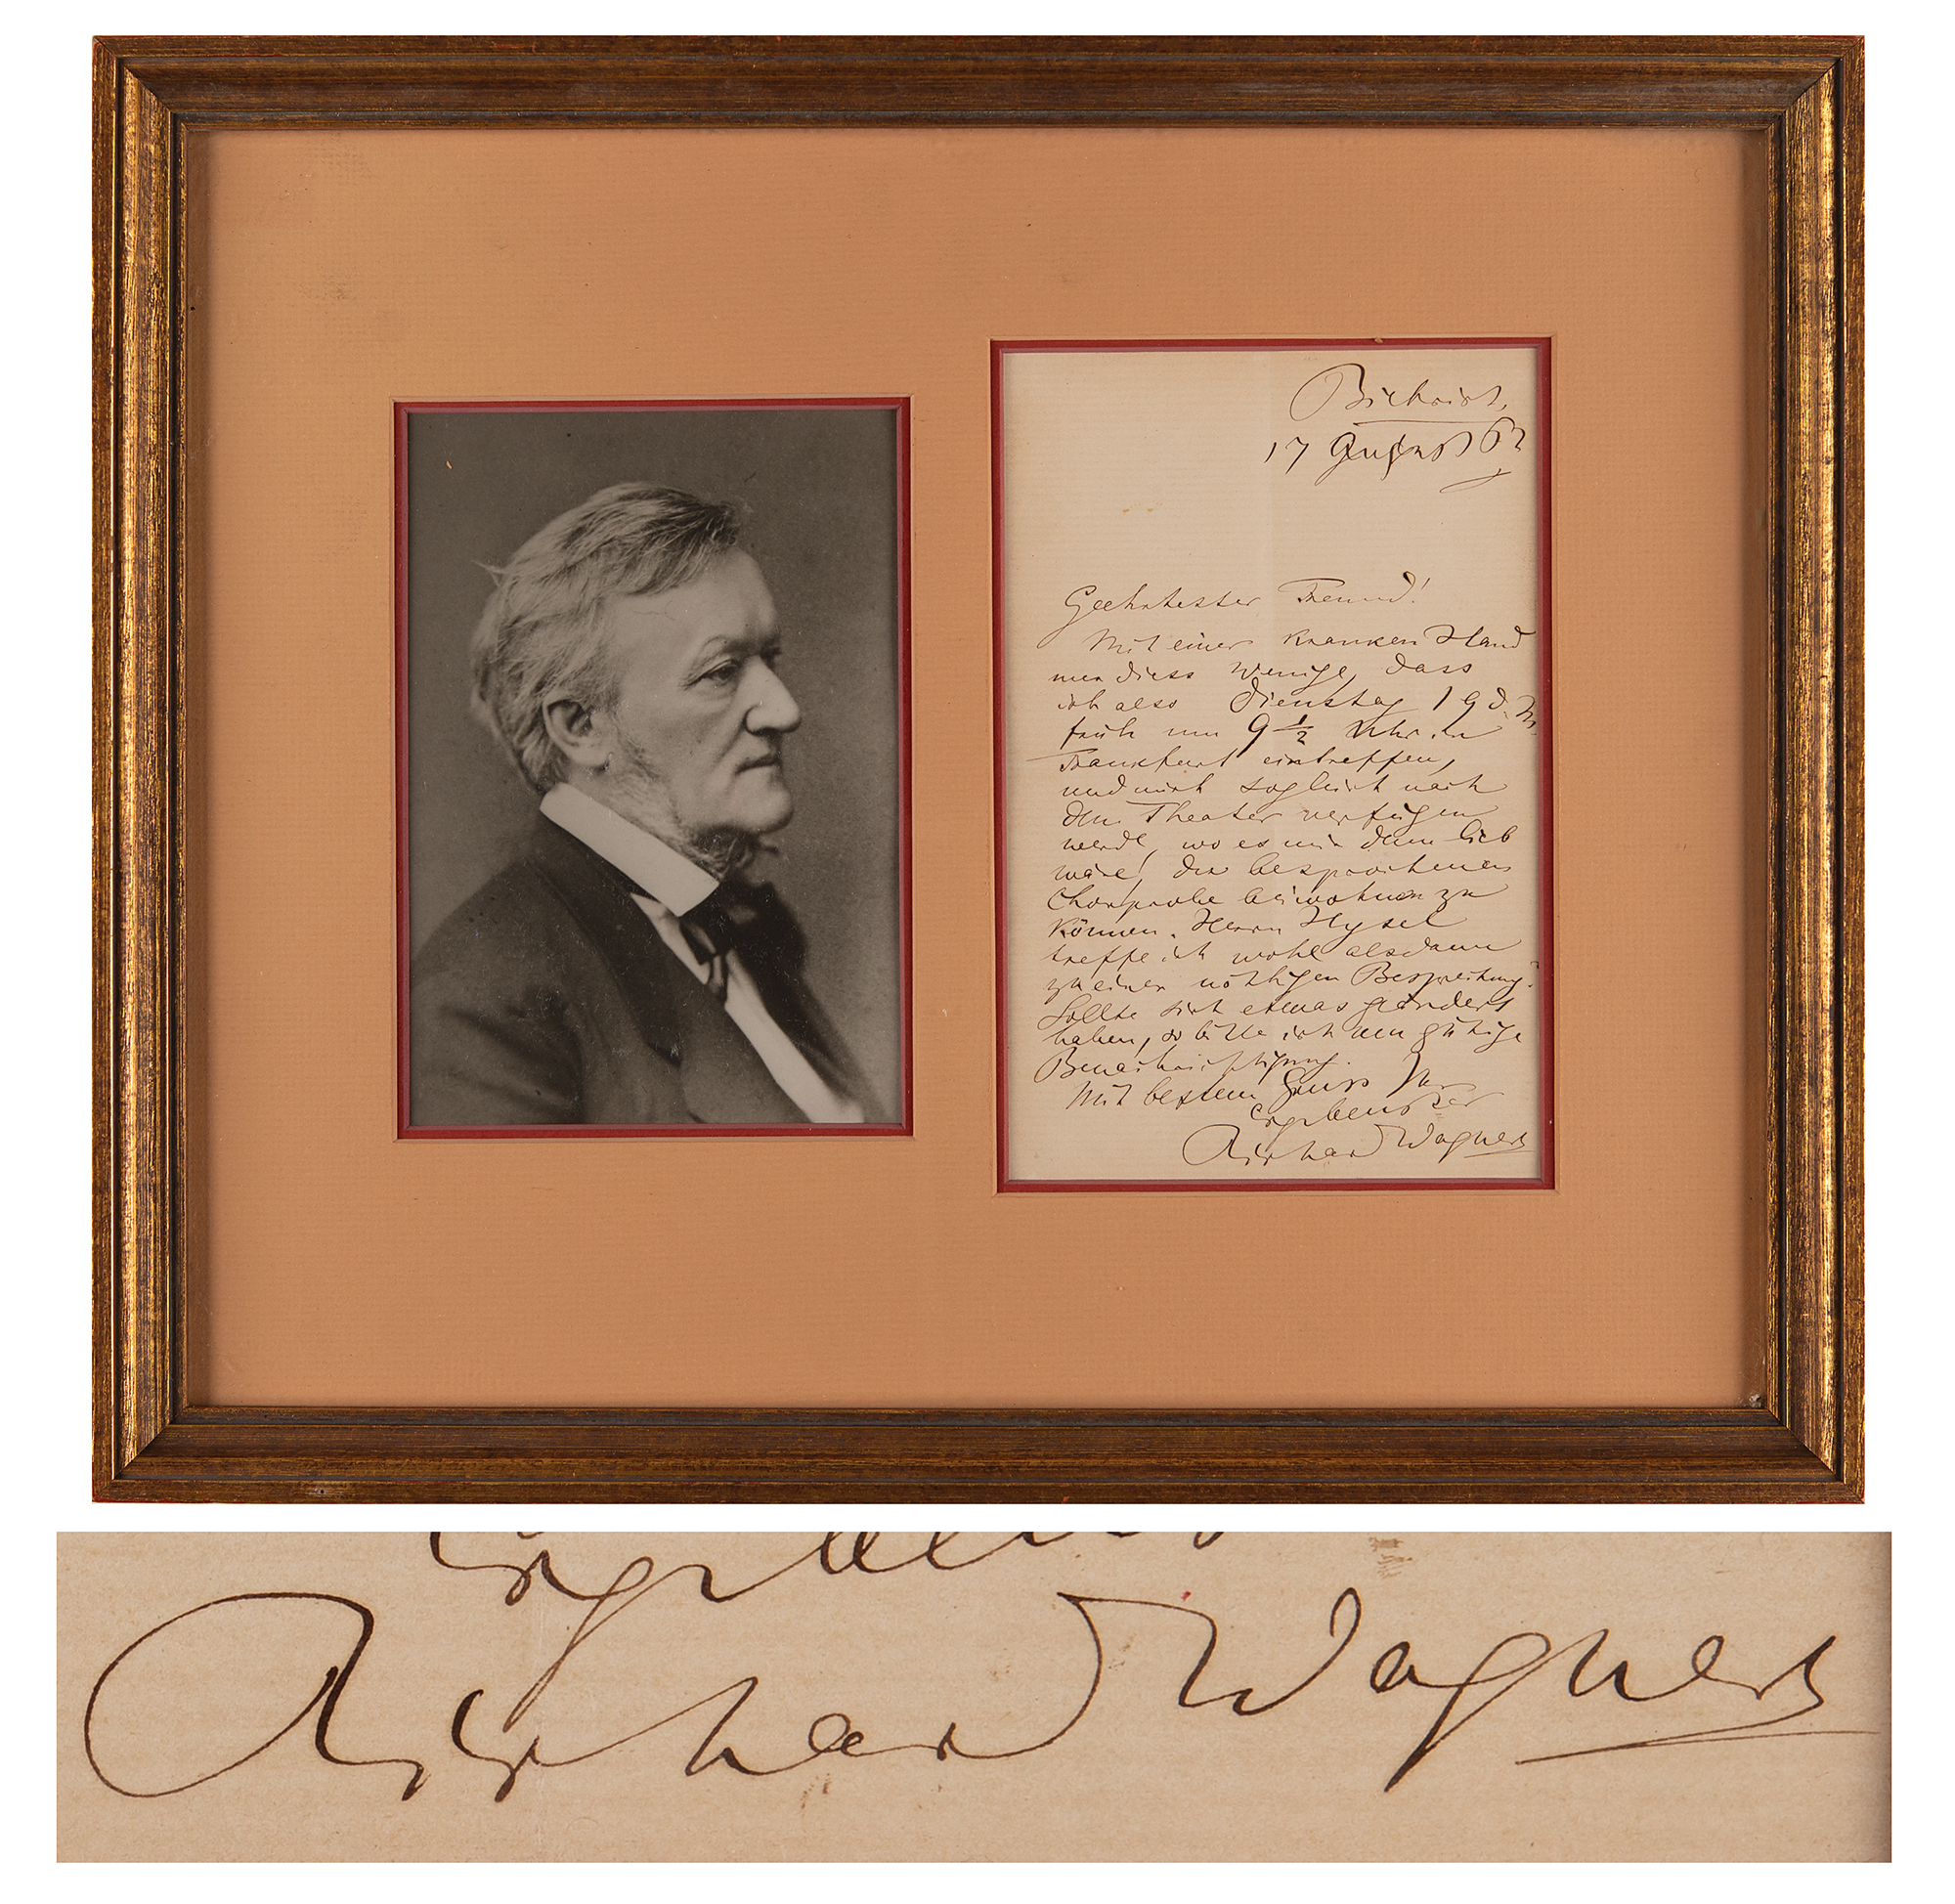 Biebrich,
17 August 62
Geehrtester Freund!
Mit einer kranken Hand
nur diess Wenige, dass
ich also Dienstag 19 d. M.
früh um 9 1/2 Uhr in
Frankfurt eintreffen,
und mich sogleich nach
dem Theater verfügen
werde, wo es mir dann lieb
wäre, der besprochenen
Chorprobe beiwohnen zu
können. Herrn Hysel
treffe ich wohl alsdann
zu einer nöthigen Besprechung?
Sollte sich etwas geändert
haben, so bitte ich um gütige
Benachrichtigung.
Mit bestem Gruss Ihr
ergebenster
Richard Wagner
ergebenster
Richard Wagner